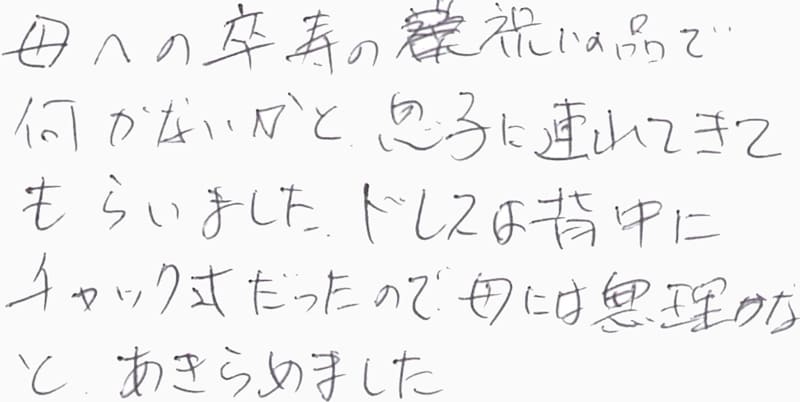 母への卒寿の祝いの品で
何かないかと、息子に連れてきて
もらいました。ドレスは背中に
チャック式だったので母には無理かな
と、あきらめました